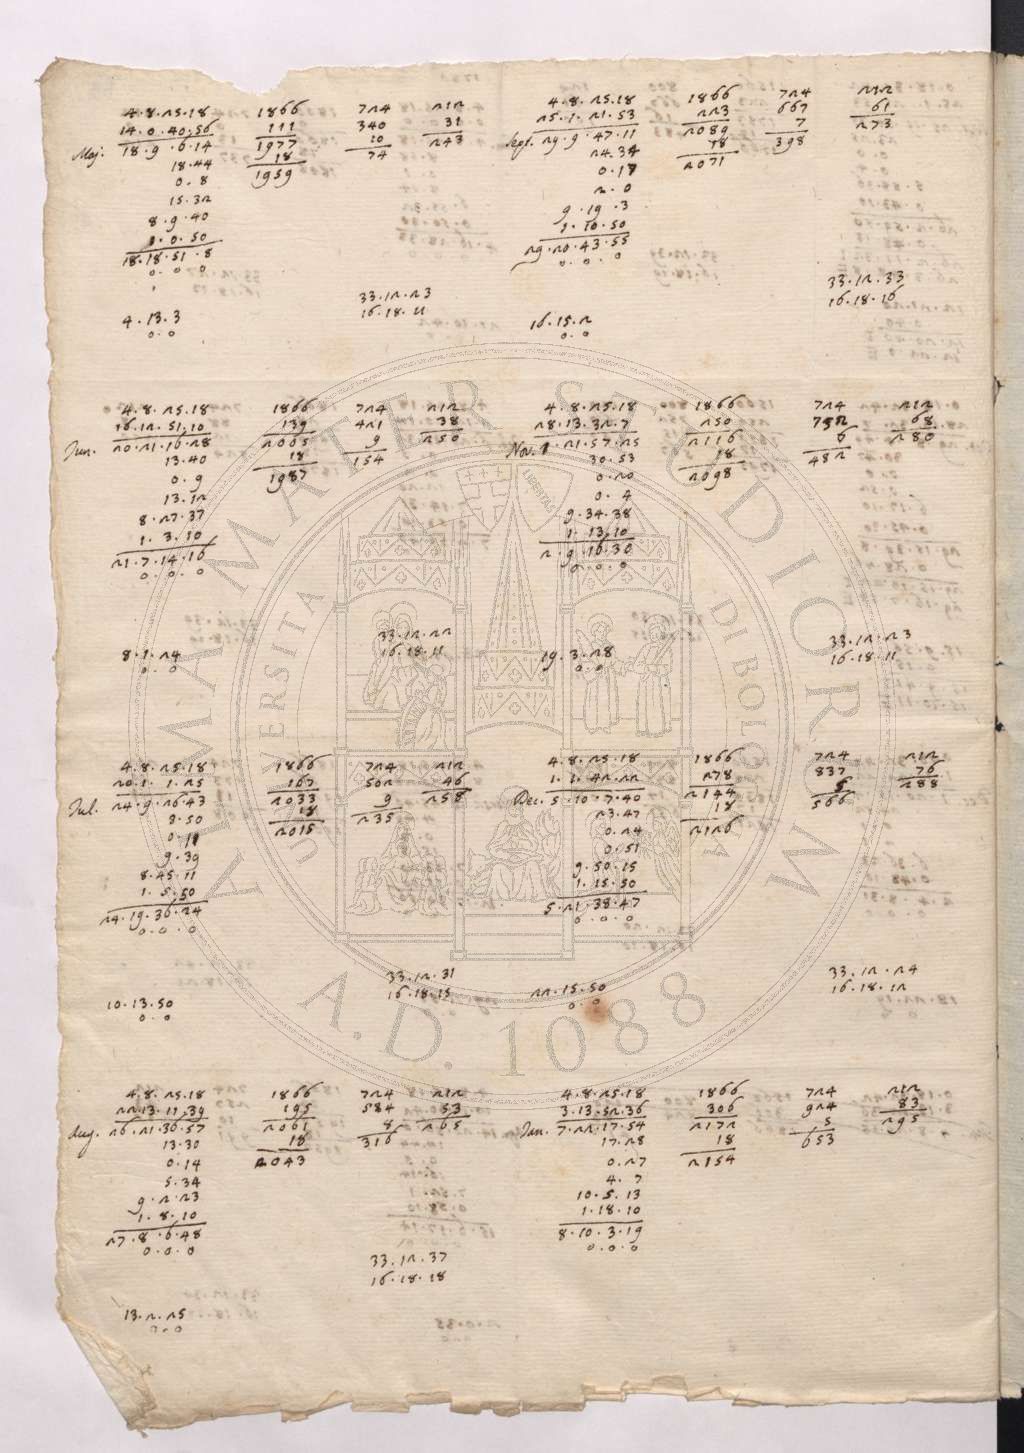 4.8.25.18 1866 724 212
14.0.40.56 111 340 31
Maj. 18.9.6.14 1977 10 243
18.44 18 74
0.8 1959
15.32
8.9.40
1.0.50
18.18.51.8
0.0.0
33.12.23
16.18.11
4.13.3
0.0
4.8.25.18 1866 724 212
25.1.21.53 223 667 61
Sept. 29.9.47.11 2089 7 273
24.34 18 398
0.17 2071
2.0
9.19.3
1.10.50
29.20.43.55
0.0.0
33.12.33
16.18.16
16.15.2
0.0
4.8.25.18 1866 724 212
16.12.51.10 139 421 38
Jun. 20.21.16.28 2005 9 250
13.40 18 154
0.9 1987
13.12
8.27.37
1.3.10
21.7.14.16
0.0.0
33.12.22
16.18.11
8.1.24
0.0
4.8.25.18 1866 724 212
28.13.32.7 250 752 68
Nov. 1.21.57.25 2116 6 280
30.53 18 482
0.20 2098
0.4
9.34.38
1.13.10
2.9.16.30
0.0.0
33.12.23
16.18.11
19.3.28
0.0
4.8.25.18 1866 724 212
20.1.1.25 167 502 46
Jul. 24.9.26.43 2033 9 258
8.50 18 235
0.11 2015
9.39
8.45.11
1.5.50
24.19.36.24
0.0.0
33.12.31
16.18.15
10.13.50
0.0
4.8.25.18 1866 724 212
1.1.42.22 278 837 76
Dec. 5.10.7.40 2144 5 288
23.47 18 566
0.24 2126
0.51
9.50.15
1.15.50
5.21.38.47
0.0.0
33.12.24
16.18.12
22.15.50
0.0
4.8.25.18 1866 724 212
22.13.11.39 195 584 53
Aug. 26.21.36.57 2061 8 265
13.30 18 316
0.14 2043
5.34
9.2.23
1.8.10
27.8.6.48
0.0.0
33.12.37
16.18.18
13.2.25
0.0
4.8.25.18 1866 724 212
3.13.52.36 306 924 83
Jan. 7.22.17.54 2172 5 295
17.28 18 653
0.27 2154
4.7
10.5.13
1.18.10
8.10.3.19
0.0.0
ALMA MATER STUDIORUM
UNIVERSITÀ DI BOLOGNA
A.D. 1088